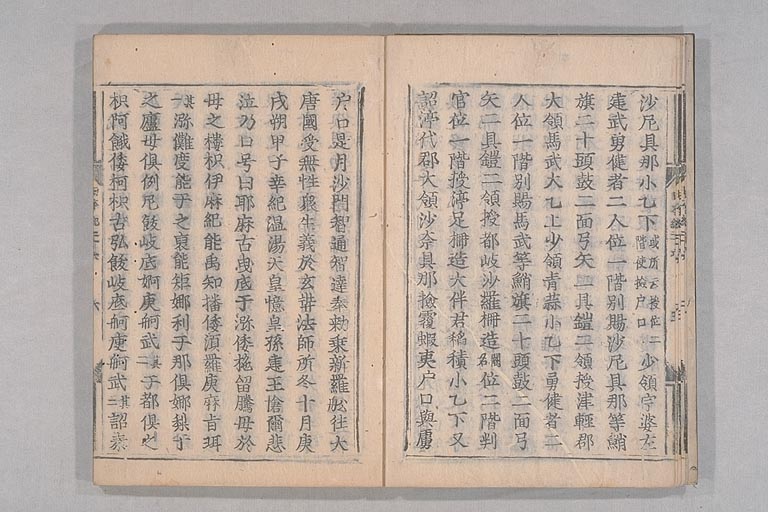 沙尼具那小乙下或所云授位二階使撿户口少領宇婆左
建武勇健者二人位一階別賜沙尼具那等鮹
旗二十頭鼓二面弓矢二具鎧二領授津輕郡
大領馬武大乙上少領青蒜小乙下勇健者二
人位一階別賜馬武等鮹旗二十頭鼓二面弓
矢二具鎧二領授都岐沙羅柵造闕名位二階判
官位一階授渟足柵造大伴君稻積小乙下又
詔渟代郡大領沙奈具那撿覆蝦夷户口與虜
户口是月沙門智通智達奉勅乘新羅舩往大
唐國受無性衆生義於玄弉法師所冬十月庚
戌朔甲子幸紀温湯天皇憶皇孫建王愴爾悲
泣乃口号曰耶麻古曳底于瀰倭柂留騰母於
母之樓枳伊麻紀能禹知播倭須羅庾麻旨珥
其一瀰儺度能于之裒能矩娜利于那倶娜梨于
之廬母倶例尼飫岐底舸庾舸武其二于都倶之
枳阿餓倭柯枳古弘飫岐底舸庾舸武其三詔秦